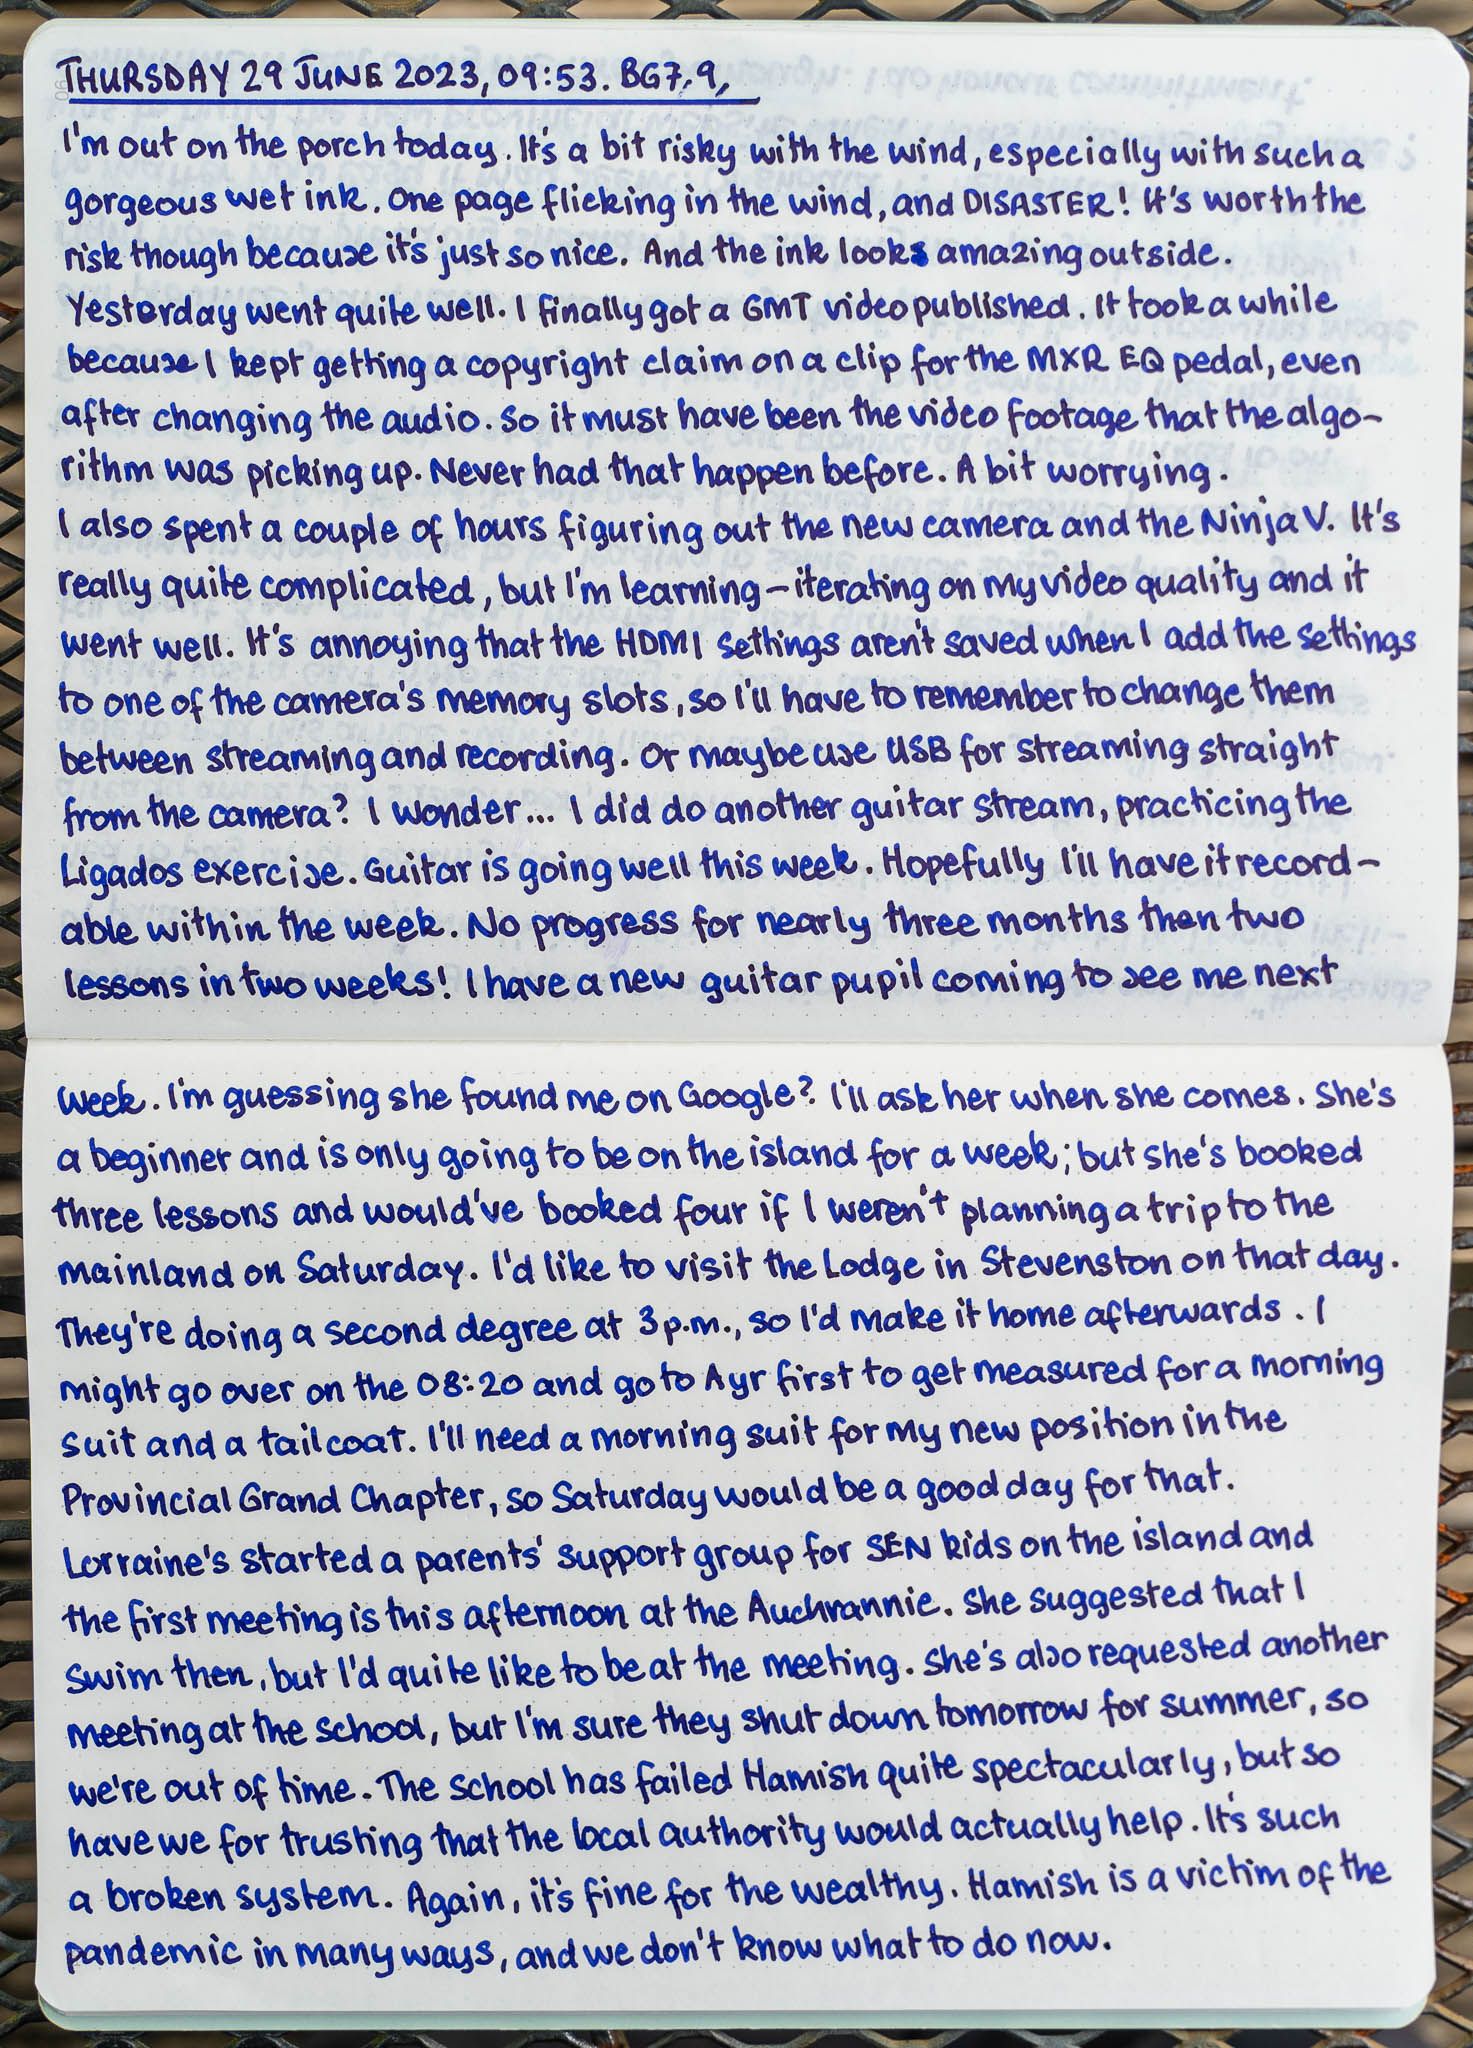 THURSDAY 29 JUNE 2023, 09:53. BG7.9,
I'm out on the porch today. It's a bit risky with the wind, especially with such a
gorgeous wet ink. One page flicking in the wind, and DISASTER! It's worth the
risk though because it's just so nice. And the ink looks amazing outside.
Yesterday went quite well. I finally got a GMT video published. It took a while
because I kept getting a copyright claim on a clip for the MXR EQ pedal, even
after changing the audio. So it must have been the video footage that the algo-
rithm was picking up. Never had that happen before. A bit worrying.
I also spent a couple of hours figuring out the new camera and the Ninja V. It's
really quite complicated, but I'm learning – iterating on my video quality and it
went well. It's annoying that the HDMI settings aren't saved when I add the settings
to one of the camera's memory slots, so I'll have to remember to change them
between streaming and recording. Or maybe use USB for streaming straight
from the camera? I wonder... I did do another guitar stream, practicing the
Ligados exercise. Guitar is going well this week. Hopefully I'll have it record-
able within the week. No progress for nearly three months then two
lessons in two weeks! I have a new guitar pupil coming to see me next
week. I'm guessing she found me on Google? I'll ask her when she comes. She's
a beginner and is only going to be on the island for a week; but she's booked
three lessons and would've booked four if I weren't planning a trip to the
mainland on Saturday. I'd like to visit the Lodge in Stevenston on that day.
They're doing a second degree at 3 p.m., so I'd make it home afterwards. I
might go over on the 08:20 and go to Ayr first to get measured for a morning
suit and a tailcoat. I'll need a morning suit for my new position in the
Provincial Grand Chapter, so Saturday would be a good day for that.
Lorraine's started a parents' support group for SEN kids on the island and
the first meeting is this afternoon at the Auchrannie. She suggested that I
swim then, but I'd quite like to be at the meeting. She's also requested another
meeting at the school, but I'm sure they shut down tomorrow for summer, so
we're out of time. The school has failed Hamish quite spectacularly, but so
have we for trusting that the local authority would actually help. It's such
a broken system. Again, it's fine for the wealthy. Hamish is a victim of the
pandemic in many ways, and we don't know what to do now.